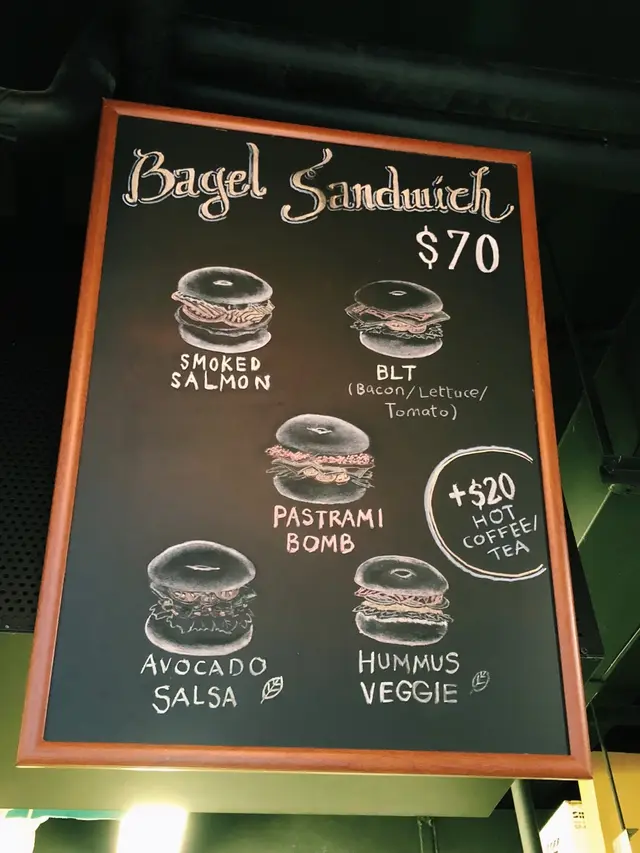 Bagel Sandwich
$70
SMOKED
SALMON
BLT
(Bacon/Lettuce/
Tomato)
PASTRAMI
BOMB
+$20
HOT
COFFEE/
TEA
AVOCADO
SALSA
HUMMUS
VEGGIE